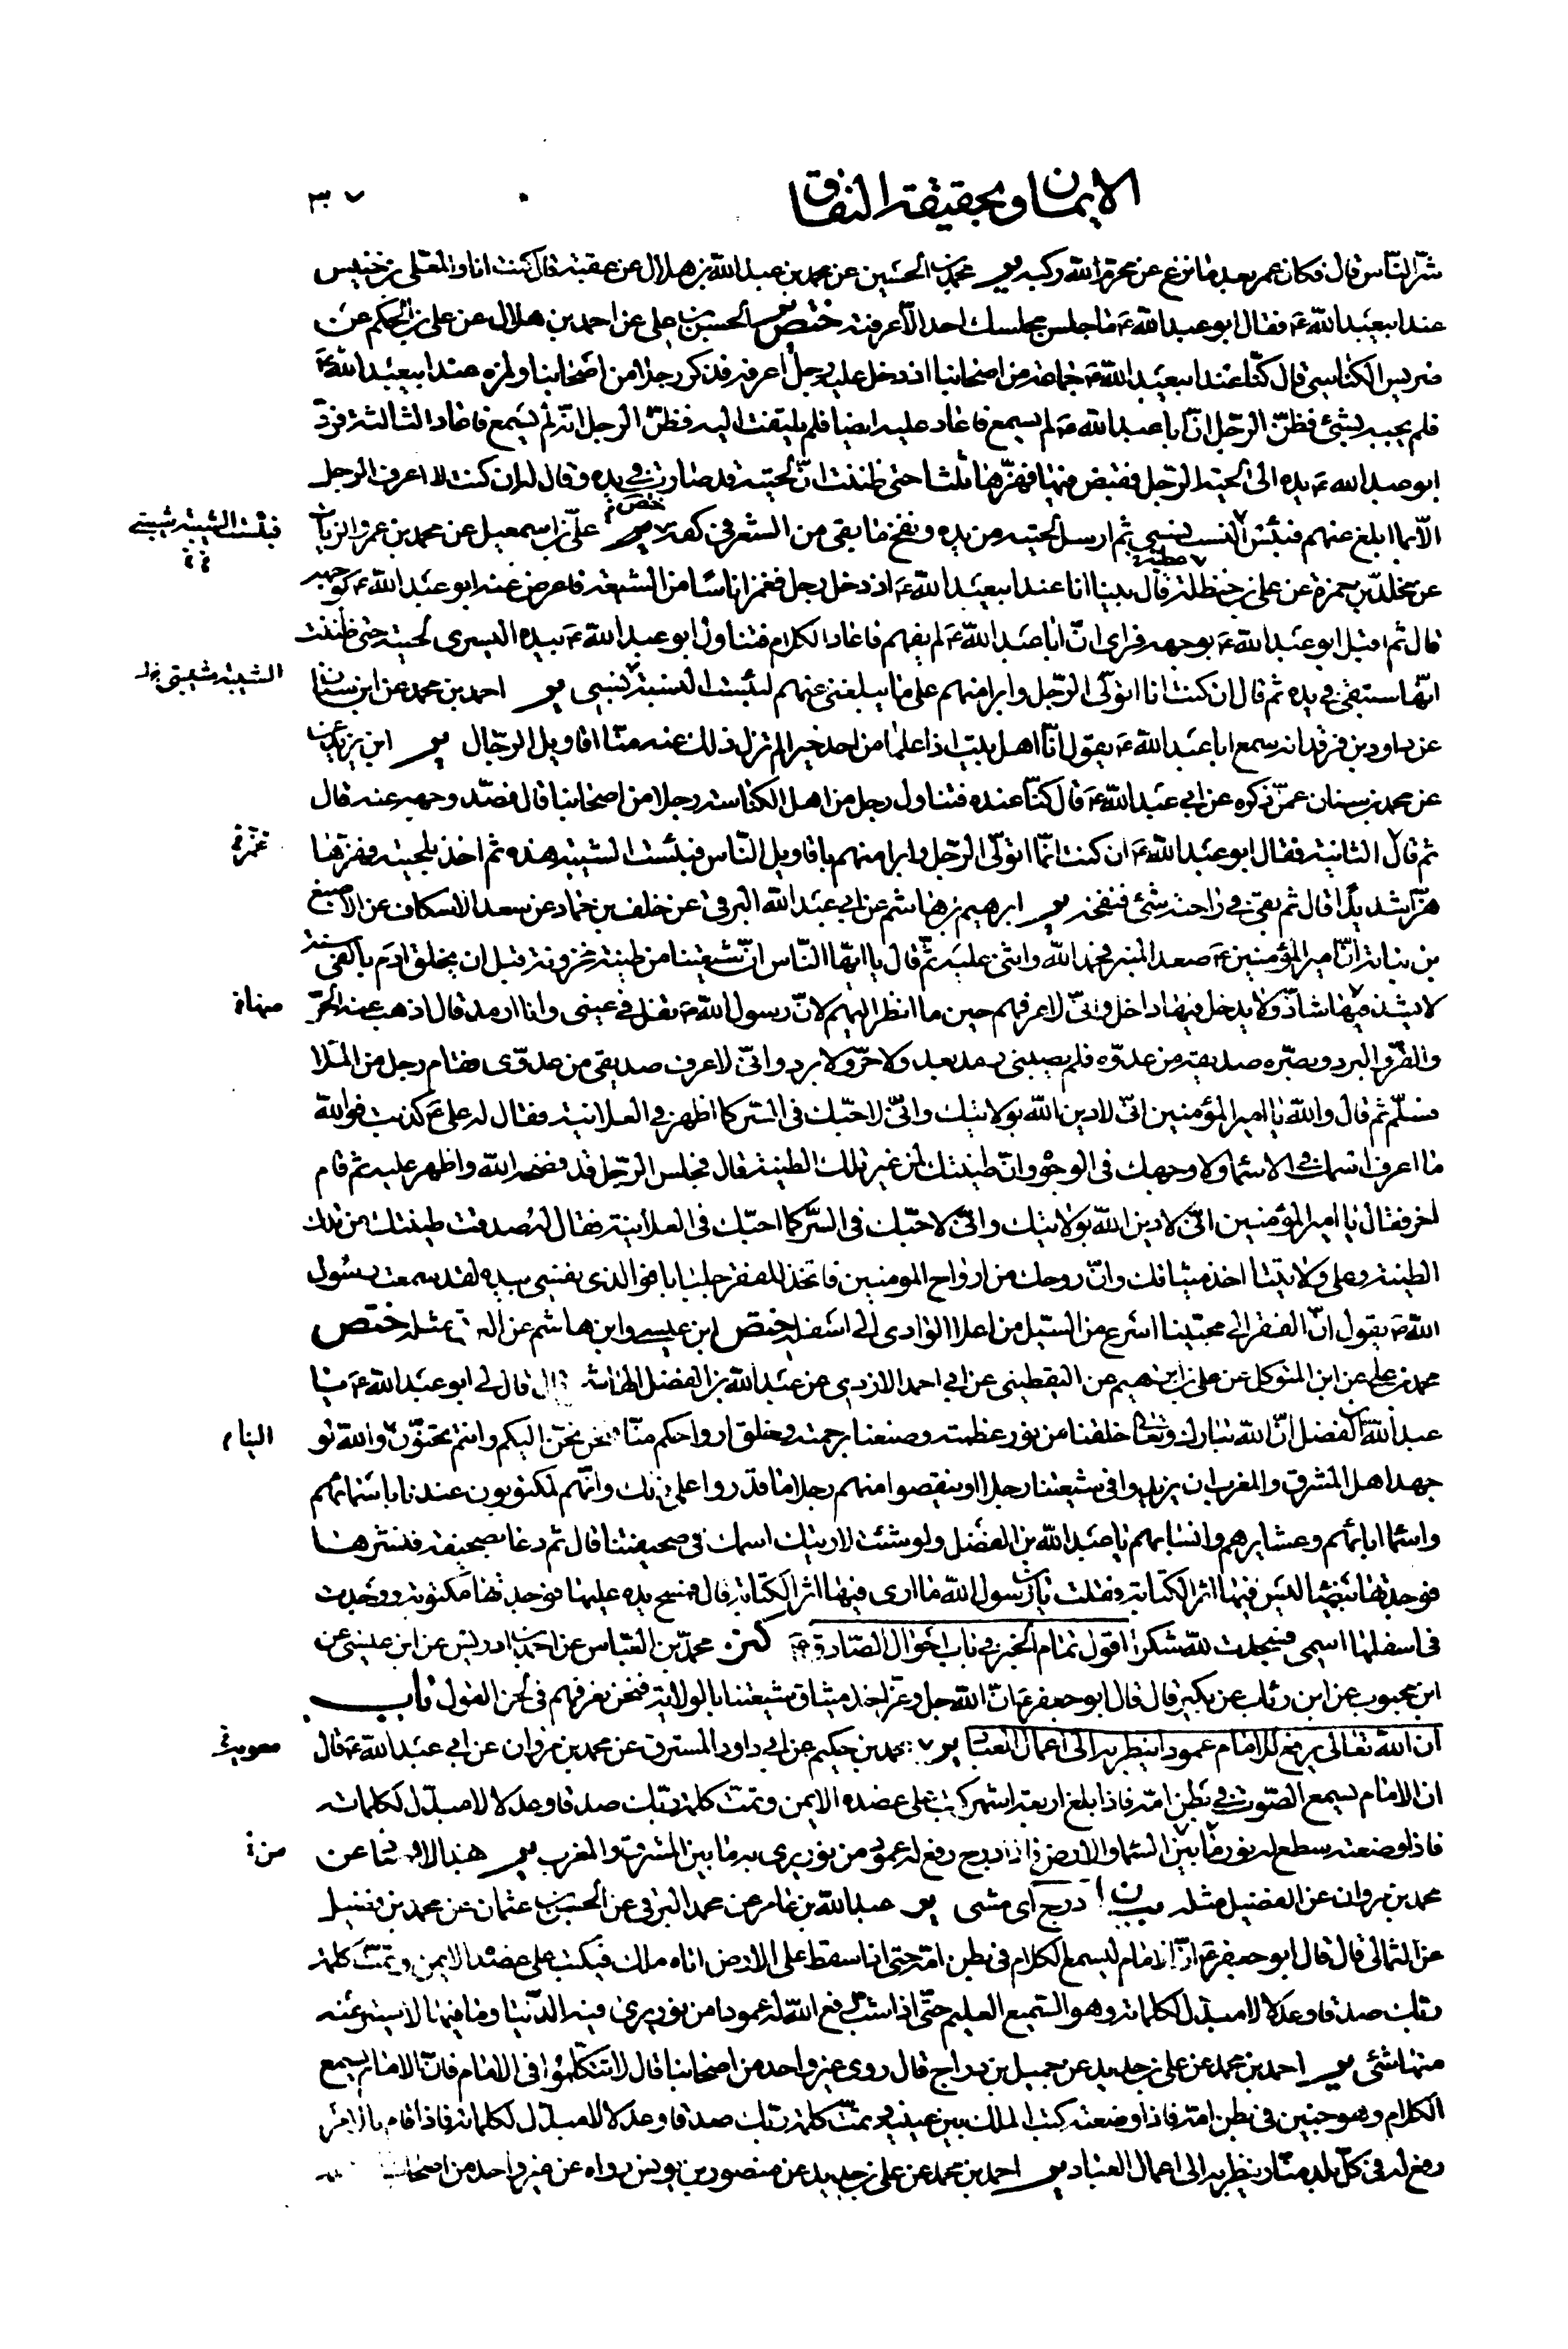 الايمان وبحقيقة النفاق
٣٠٧
شرّ الناس قال فكان عمر بعد ما نزع عن محرم الله ركبه ير محمد بن الحسين عن محمد بن عبد الله بن هلال عن عقبة قال كنت انا والمعلى بن خنيس
عند ابيعبد الله ع فقال ابو عبد الله ع ما جلس مجلسك احد الّا عرفته ختص ير الحسين بن علي عن احمد بن هلال عن علي بن الحكم عن
ضريس الكناسي قال كنّا عند ابيعبد الله ع جماعة من اصحابنا اذ دخل عليه رجل اعرفه فذكر رجلا من اصحابنا ولمزه عند ابيعبد الله ع
فلم يجبه بشئ فظنّ الرجل انّ ابا عبد الله ع لم يسمع فاعاد عليه ايضا فلم يلتفت اليه فظنّ الرجل انّه لم يسمع فاعاد الثالثة فردّ
ابو عبد الله ع يده الى لحية الرجل فقبض منها فهزّها ثلثا حتى ظننت انّ لحيته قد صارت في يده وقال له ان كنت لا اعرف الرجل
الّا بما ابلغ عنهم فبئس النسب نسبي ثم ارسل لحيته من يده ونفخ ما بقى من الشعر في كفه ختص ير عليّ بن اسمعيل عن محمد بن عمرو الزيات
فبئست الشيبة شيبتي
عن مخلد بن حمزة عن علي بن حنظلة قال بينا انا عند ابيعبد الله ع اذ دخل رجل فغمز اناسا من الشيعة فاعرض عنه ابو عبد الله ع بوجهه
قال ثم اقبل ابو عبد الله ع بوجهه فراى انّ ابا عبد الله ع لم يفهم فاعاد الكلام فتناول ابو عبد الله ع بيده اليسرى لحيته حتى ظننت
انّها ستبقى في يده ثم قال ان كنت انا اتولّى الرجل وابرا منهم على ما يبلغني عنهم لبئست النسبة نسبي ير احمد بن محمد عن ابن سنان
الشيبة شيبتي
عن داود بن فرقد انه سمع ابا عبد الله ع يقول انّا اهل بيت اذا علمنا من احد خيرا لم تزل ذلك عنه منّا اقاويل الرجال ير ابن يزيد
عن محمد بن سنان عمّن ذكره عن ابي عبد الله ع قال كنّا عنده فتناول رجل من اهل الكناسة رجلا من اصحابنا قال فصدّ وجهه عنه قال
ثم قال الثانية فقال ابو عبد الله ع ان كنت انّما اتولّى الرجل وابرا منهم باقاويل الناس فبئست الشيبة هذه ثم اخذ بلحيته فهزّها
هزّا شديدا قال ثم بقى في راحته شئ فنفخه ير ابرهيم بن هاشم عن ابي عبد الله البرقي عن خلف بن حماد عن سعد الاسكاف عن الاصبغ
بن نباتة انّ امير المؤمنين ع صعد المنبر فحمد الله واثنى عليه ثمّ قال يا ايّها الناس انّ شيعتنا من طينة مخزونة قبل ان يخلق ادم بالفي سنة
لا يشذ منها شاذّ ولا يدخل فيها داخل وانّي لاعرفهم حين ما انظر اليهم لانّ رسول الله ص تفل في عيني وانا ارمد قال اذهب عنه الحرّ
والقرّ والبرد وبصّره صديقه من عدوّه فلم يصبني رمد بعد ولا حرّ ولا برد وانّي لاعرف صديقي من عدوّي فقام رجل من الملا
فسلّم ثم قال والله يا امير المؤمنين انّي لادين الله بولايتك وانّي لاحبّك في السر كما اظهر في العلانية فقال له علي ع كذبت فوالله
ما اعرف اسمك في الاسماء ولا وجهك في الوجوه وانّ طينتك لمن غير تلك الطينة قال فجلس الرجل قد فضحه الله واظهر عليه ثم قام
اخر فقال يا امير المؤمنين انّي لادين الله بولايتك وانّي لاحبّك في السرّ كما احبّك في العلانية فقال له صدقت طينتك من تلك
الطينة وعلى ولايتنا اخذ ميثاقك وانّ روحك من ارواح المومنين فاتخذ للفقر جلبابا فو الذي نفسي بيده لقد سمعت رسول
الله ص يقول انّ الفقر الى محبّينا اسرع من السيل من اعلا الوادي الى اسفله ختص ابن عيسى وابن هاشم عن البرقي مثله ختص
محمد بن علي عن ابن المتوكل عن علي بن ابرهيم عن اليقطيني عن ابي احمد الازدي عن عبد الله بن الفضل الهاشمي قال قال لي ابو عبد الله ع يا
عبد الله بن الفضل انّ الله تبارك وتعالى خلقنا من نور عظمته وصنعنا برحمته وخلق ارواحكم منّا فنحن نحنّ اليكم وانتم تحنّون والله لو
الينا م
جهد اهل المشرق والمغرب ان يزيدوا في شيعتنا رجلا او ينقصوا منهم رجلا ما قدروا على ذلك وانّهم لمكتوبون عندنا باسمائهم
واسماء ابائهم وعشايرهم وانسابهم يا عبد الله بن الفضل ولو شئت لاريتك اسمك في صحيفتنا قال ثم دعا بصحيفة فنشرها
فوجدتها بيضا ليس فيها اثر الكتابة فقلت يابن رسول الله ما ارى فيها اثر الكتابة قال فمسح يده عليها فوجدتها مكتوبة ووجدت
في اسفلها اسمي فسجدت لله شكرا اقول تمام الخبر في باب احوال الصادق ع كنز محمد بن العباس عن احمد بن ادريس عن ابن عيسى عن
ابن محبوب عن ابن رئاب عن بكير قال قال ابو جعفر ع انّ الله جل وعز اخذ ميثاق شيعتنا بالولاية فنحن نعرفهم في لحن القول باب
ان الله تعالى يرفع للامام عمودا ينظر به الى اعمال العباد ير محمد بن حكيم عن ابي داود المسترق عن محمد بن مروان عن ابي عبد الله ع قال
ان الامام يسمع الصوت في بطن امّه فاذا بلغ اربعة اشهر كتب على عضده الايمن وتمت كلمة ربّك صدقا وعدلا لا مبدّل لكلماته
فاذا وضعته سطع له نور ما بين السماء والارض فاذا درج رفع له عمود من نور يرى به ما بين المشرق والمغرب ير هذا الاسناد عن
محمد بن مروان عن الفضيل مثله بيان درج اى مشى ير عبد الله بن عامر عن محمد البرقي عن الحسين بن عثمان عن محمد بن فضيل
عن الثمالي قال قال ابو جعفر ع انّ الامام ليسمع الكلام في بطن امّه حتى اذا سقط على الارض اتاه ملك فيكتب على عضده الايمن وتمّت كلمة
ربّك صدقا وعدلا لا مبدّل لكلماته وهو السميع العليم حتّى اذا شب رفع الله له عمودا من نور يرى فيه الدنيا وما فيها لا يستر عنه
منها شئ ير احمد بن محمد عن علي بن حديد عن جميل بن دراج قال روى غير واحد من اصحابنا قال لا تتكلّموا في الامام فانّ الامام يسمع
الكلام وهو جنين في بطن امّه فاذا وضعته كتب الملك بين عينيه وتمّت كلمة ربّك صدقا وعدلا لا مبدّل لكلماته فاذا قام بالامر
رفع له في كل بلد منار ينظر به الى اعمال العباد ير احمد بن محمد عن علي بن حديد عن منصور بن يونس رواه عن غير واحد من اصحابنا